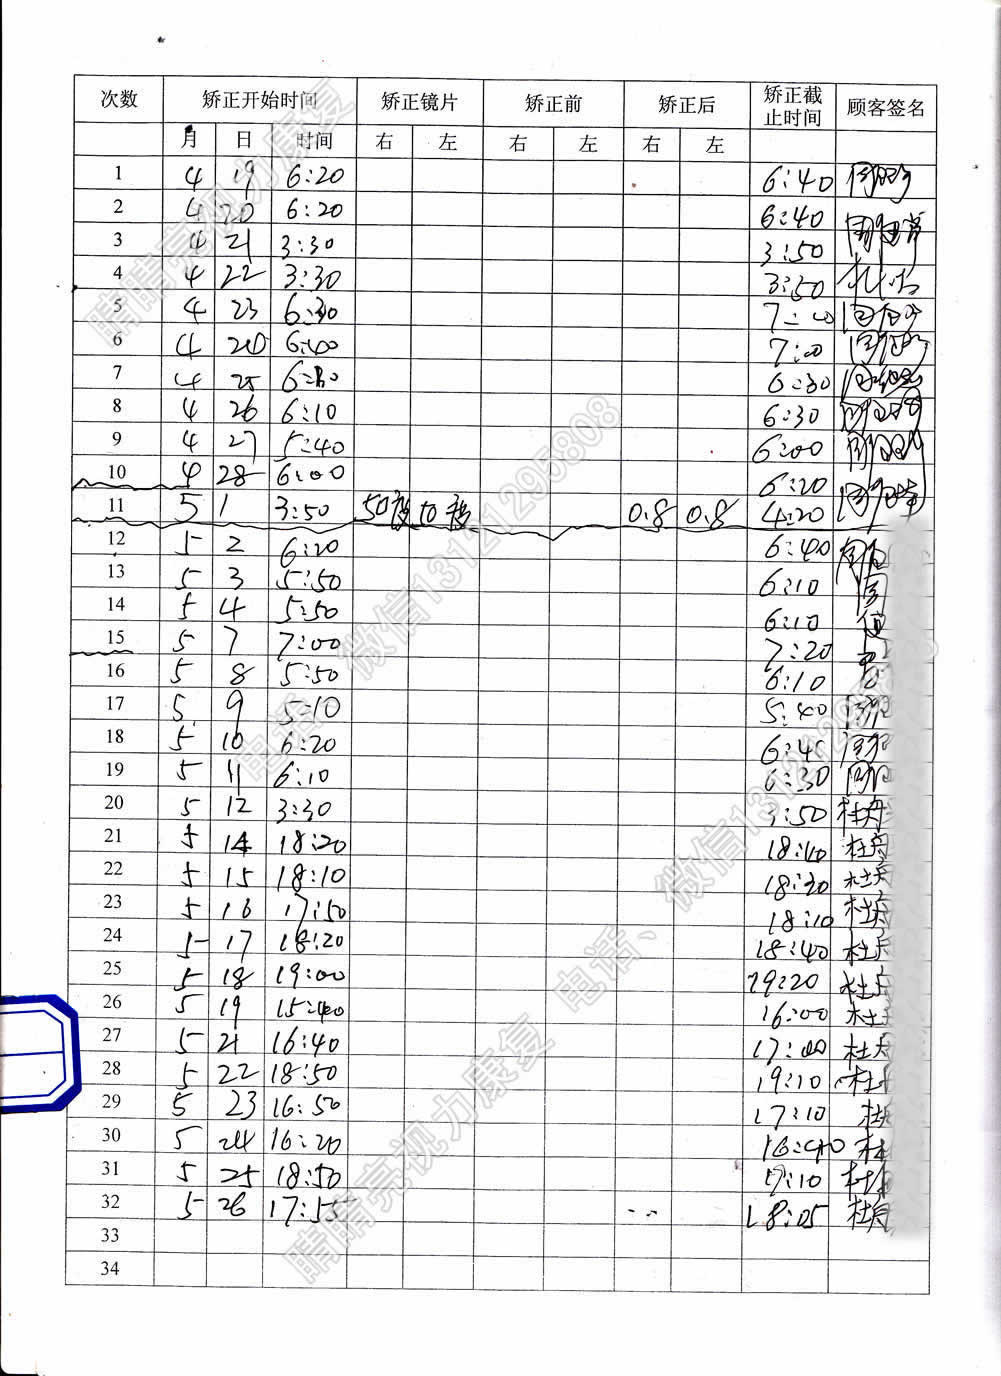 次数 矫正开始时间 矫正镜片 矫正前 矫正后 矫正截止时间 顾客签名
月 日 时间 右 左 右 左 右 左
1 4 19 6:20 6:40
2 4 20 6:20 6:40
3 4 21 3:30 3:50
4 4 22 3:30 3:50
5 4 23
6 4 6:40 7:00
7 4 25 6:30
8 4 26 6:10 6:30
9 4 27 5:40 6:00
10 4 28 6:00 6:20
11 5 1 3:50 50度 0.8 0.8 4:20
12 5 2 6:20 6:40
13 5 3 5:50 6:10
14 5 4 5:50 6:10
15 5 7 7:00 7:20
16 5 8 5:50 6:10
17 5 9 5:10 5:40
18 5 10 6:20 6:40
19 5 11 6:10 6:30
20 5 12 3:30 3:50 杜
21 5 14 18:20 18:40 杜
22 5 15 18:10 18:30 杜
23 5 16 17:50 18:10 杜
24 5 17 18:20 18:40 杜
25 5 18 19:00 19:20 杜
26 5 19 15:40 16:00 杜
27 5 21 16:40 17:00 杜
28 5 22 18:50 19:10 杜
29 5 23 16:50 17:10 杜
30 5 24 16:20 16:40 杜
31 5 25 18:50 19:10 杜
32 5 26 17:55 18:05 杜
33
34
睛睛亮视力康复
电话、微信13121295808
睛睛亮视力康复
电话、微信13121295808